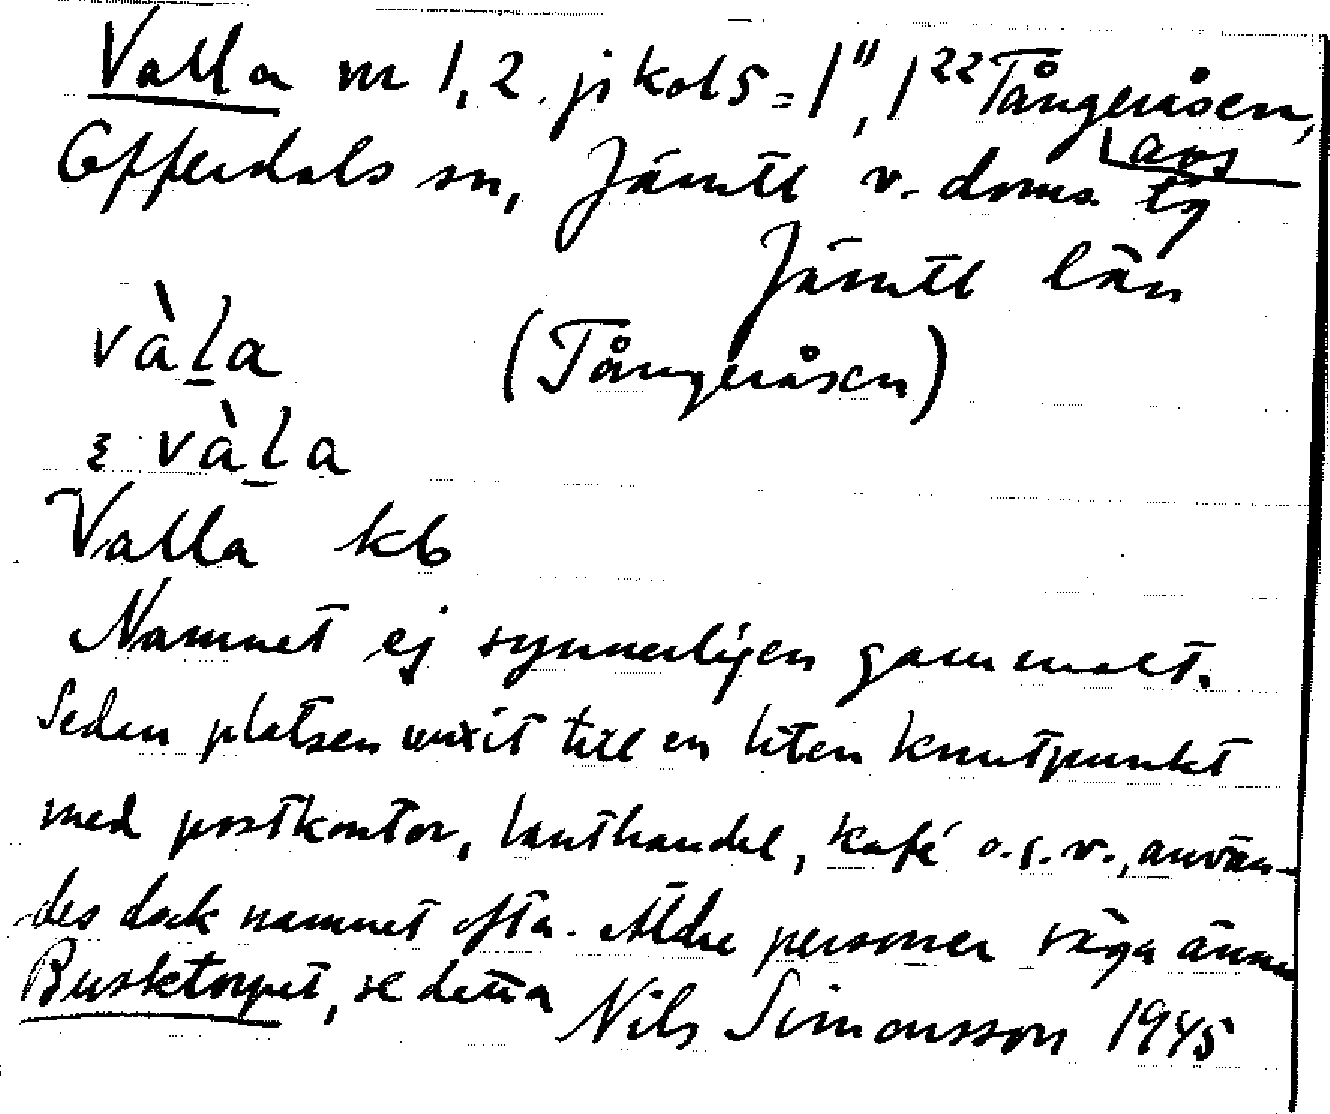 Valla nr 1, 2. jikol 5 = 1¹¹, 1²² Tångeråsen,
Offerdals sn, Jämtl v. doms tg
avs
Jämtl län
vàla (Tångeråsen)
vàla
Valla kb
Namnet ej synnerligen gammalt.
Sedan platsen vuxit till en liten knutpunkt
med postkontor, lanthandel, kafé o.s.v., använ-
des dock namnet ofta. Äldre personer säga ännu
Busktorpet, se detta Nils Simonsson 1945